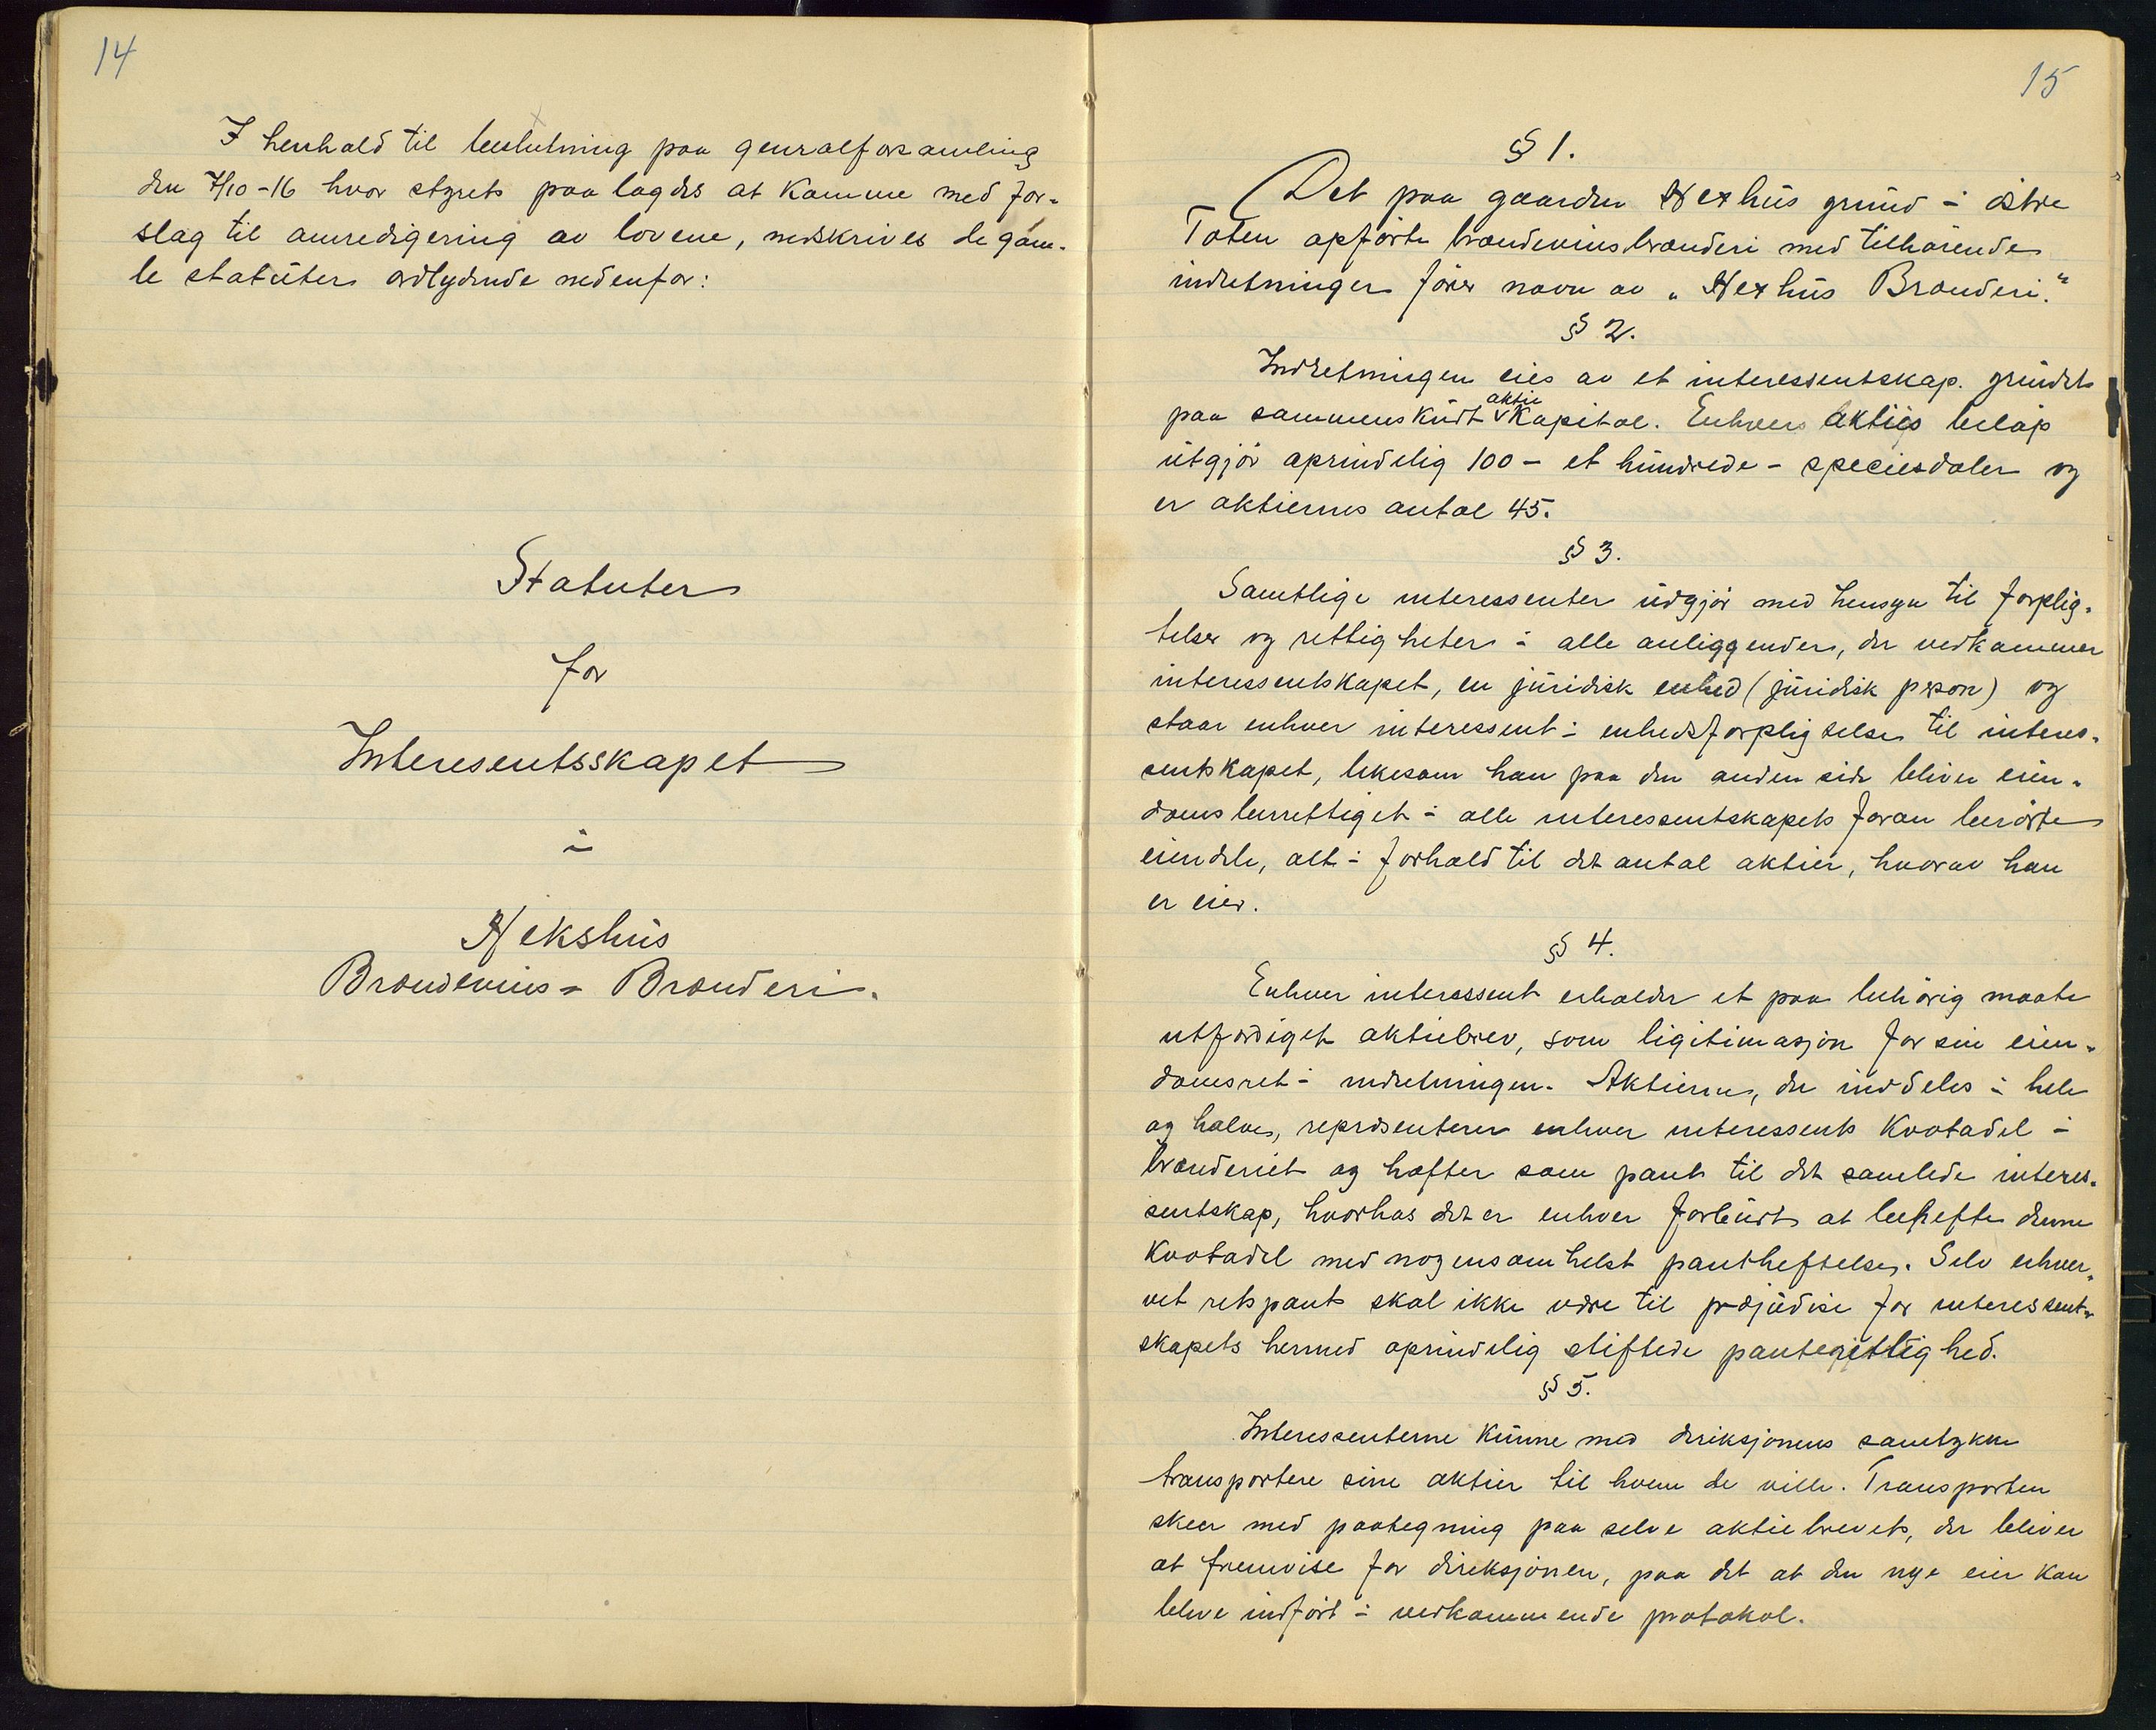 14
I henhold til beslutning paa generalforsamling
den 7/10-16 hvor styret paalagdes at komme med for-
slag til omredigering av lovene, nedskrives de gam-
le statuter ordlydende nedenfor:
Statuter
for
Interesentsskapet
i
Hekshus
Brændevins- Brænderi.
15
§ 1.
Det paa gaarden Hexhus grund i östre
Toten opförte brændevinsbrænderi med tilhörende
indretninger förer navn av "Hexhus Brænderi."
§ 2.
Indretningen eies av et interessentskap. grundet
paa sammenskudt aktie kapital. Enhvers aktiies belöp
utgjör oprindelig 100 - et hundrede - speciesdaler og
er aktiernes antal 45.
§ 3.
Samtlige interessenter udgjör med hensyn til forplig-
telser og rettigheter i alle anliggender, der vedkommer
interessentskapet, en juridisk enhed (juridisk person) og
staar enhver interessent i enhedsforpligtelse til interes-
sentskapet, likesom han paa den anden side bliver eien-
domsberettiget i alle interessentskapets foran berörte
eiendele, alt i forhold til det antal aktier, hvorav han
er eier.
§ 4.
Enhver interessent erholder et paa behörig maate
utfærdiget aktiebrev, som ligitimasjon for sin eien-
domsret i indretningen. Aktierne, der inddeles i hele
og halve, repræsenterer enhver interessents kvotadel i
brænderiet og hæfter som pant til det samlede interes-
sentskap, hvorhos det er enhver forbudt at behefte denne
kvotadel med nogensomhelst pantheftelse. Selv erhver-
vet retspant skal ikke være til præjudise for interessent-
skapets hermed oprindelig stiftede pantegjitlighed.
§ 5.
Interessenterne kunne med direksjonens samtykke
transportere sine aktier til hvem de ville. Transporten
skeer med paategning paa selve aktiebrevet, der bliver
at fremvise for direksjonen, paa det at den nye eier kan
blive indfört i vedkommende protokol.